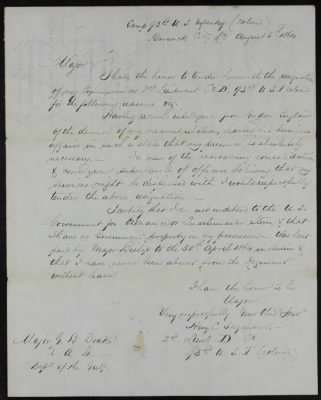 Camp 93d U.S. Infantry (colored)
Berwick City La August 5th 1864
Major
I have the honor to tender herewith the resignation
of my Commission as 2nd Lieutenant Co D, 93d U.S.I. colored
for the following reasons viz.
Having received intelligence from London England
of the demise of my nearest relative, leaving his business
affairs in such a state that my presence is absolutely
necessary. In view of the approaching consolidation
& consequent superfluity of officers believing that my
services might be dispensed with I would respectfully
tender the above resignation.
I certify that I am not indebted to the U.S.
Government for Ordnance or Quartermasters stores, & that
I have no Government property in my possession. Was last
paid by Major to the 30th April 1864 inclusive &
that I have never been absent from the Regiment
without leave
I have the honor to be
Major
Very respectfully Your Obdt Servt
Seymour
2d Lieut. D Co
93d U.S.I. (colored)
Major G. B. Drake
A.A.G.
Dept of the Gulf.